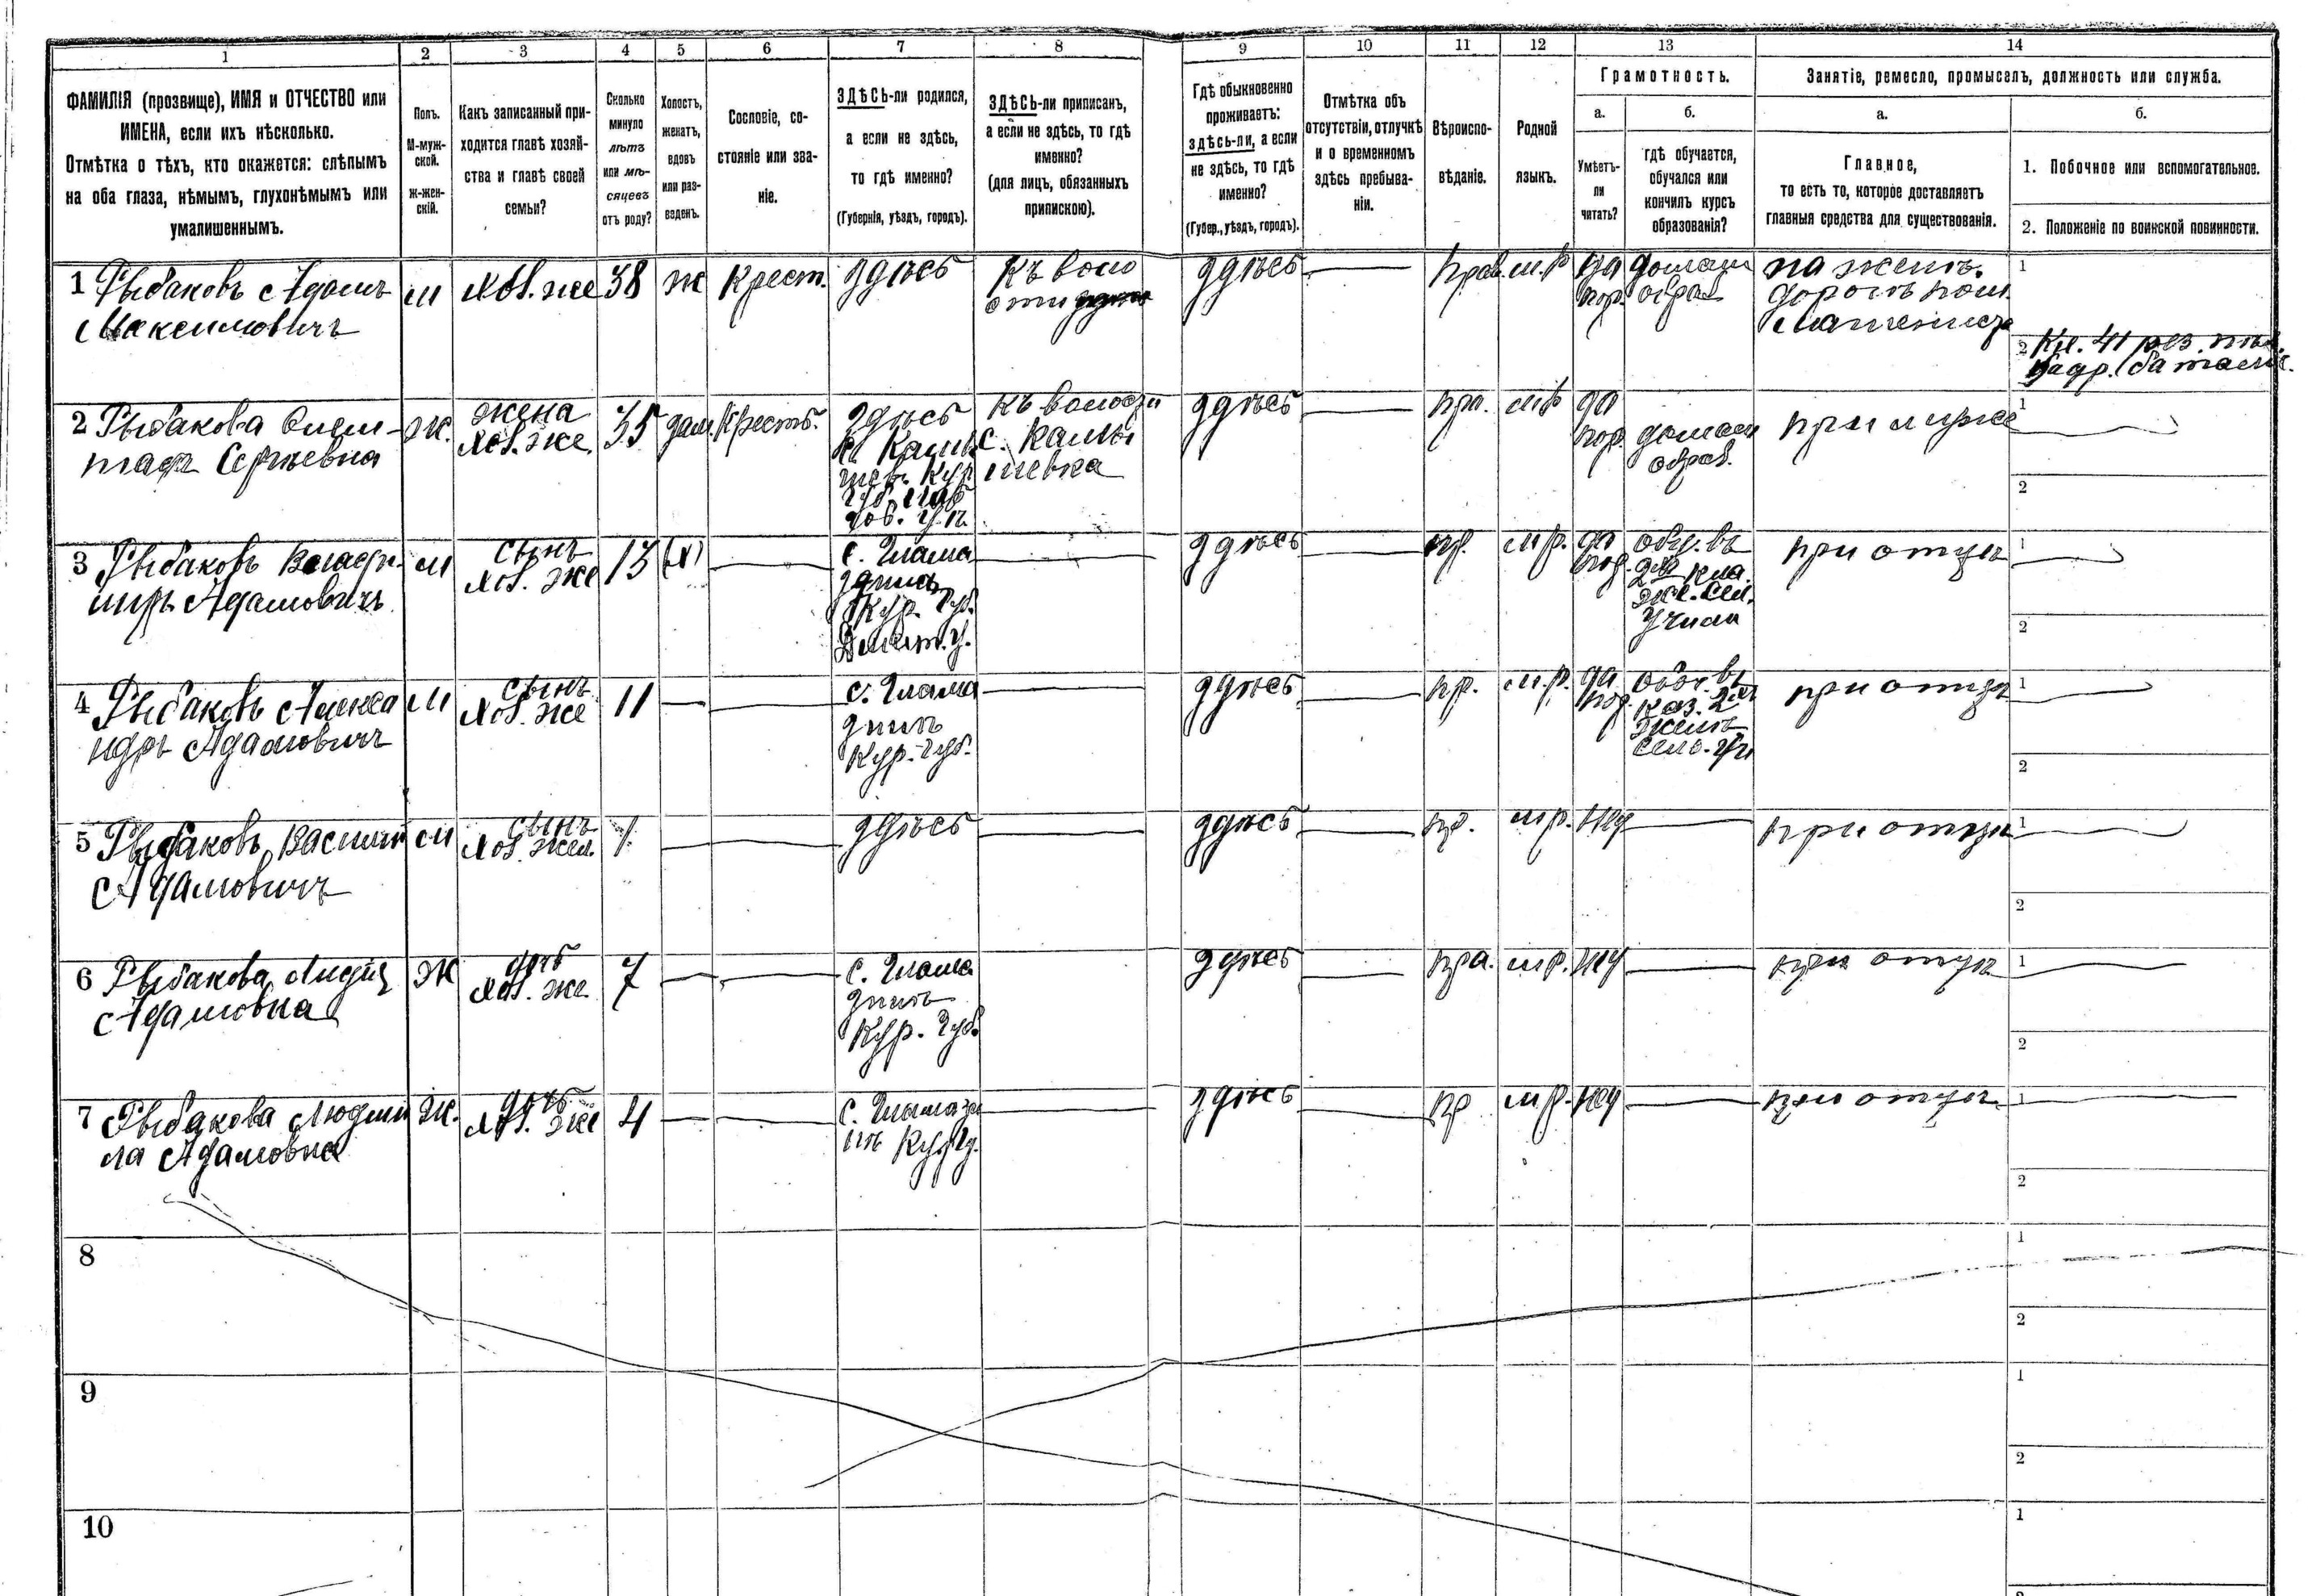 1 2 3 4 5 6 7 8 9 10 11 12 13 14
ФАМИЛІЯ (прозвище), ИМЯ и ОТЧЕСТВО или
ИМЕНА, если ихъ нѣсколько.
Отмѣтка о тѣхъ, кто окажется: слѣпымъ
на оба глаза, нѣмымъ, глухонѣмымъ или
умалишеннымъ.
Полъ.
М-муж-
ской.
Ж-жен-
скій.
Какъ записанный при-
ходится главѣ хозяй-
ства и главѣ своей
семьи?
Сколько
минуло
лѣтъ
или мѣ-
сяцевъ
отъ роду?
Холостъ,
женатъ,
вдовъ
или раз-
веденъ.
Сословіе, со-
стояніе или зва-
ніе.
ЗДѢСЬ-ли родился,
а если не здѣсь,
то гдѣ именно?
(Губернія, уѣздъ, городъ).
ЗДѢСЬ-ли приписанъ,
а если не здѣсь, то гдѣ
именно?
(для лицъ, обязанныхъ
припискою).
Гдѣ обыкновенно
проживаетъ:
здѣсь-ли, а если
не здѣсь, то гдѣ
именно?
(Губер., уѣздъ, городъ).
Отмѣтка объ
отсутствіи, отлучкѣ
и о временномъ
здѣсь пребыва-
ніи.
Вѣроиспо-
вѣданіе.
Родной
языкъ.
Грамотность.
а.
Умѣетъ-
ли
читать?
б.
гдѣ обучается,
обучался или
кончилъ курсъ
образованія?
Занятіе, ремесло, промыселъ, должность или служба.
а.
Главное,
то есть то, которое доставляетъ
главныя средства для существованія.
б.
1. Побочное или вспомогательное.
2. Положеніе по воинской повинности.
1 Рыбаковъ Адамъ
Максимовичъ
м
хоз. же
38
ж
крест.
здѣсь
къ воло
сти
здѣсь
прав.
м.р
да
домаш
образ
на желѣ.
дорогѣ пом.
машениста
1
2
2 Рыбакова
Сергѣевна
ж.
жена
хоз. же.
35
зам.
Крест.
здѣсь
къ волости
с. Камы
шевка
здѣсь
пра.
м.р
да
домаш
образ.
при мужѣ
1
2
3 Рыбаковъ Влади
миръ Адамовичъ
м
сынъ
хоз. же
13
(х)
с. Глама
здинѣ
Кур. Губ.
Дмит. у.
здѣсь
пр.
м.р.
да
обуч. въ
2м кла.
же. сел.
Учил
при отцѣ
1
2
4 Рыбаковъ Алекса
ндръ Адамовичъ
м
сынъ
хоз. же
11
с. Глама
здинѣ
Кур. Губ.
здѣсь
пр.
м.р.
да
обуч. въ
сель. уч
при отцѣ
1
2
5 Рыбаковъ Василій
Адамовичъ
м
сынъ
хоз. жел.
здѣсь
здѣсь
пр.
м.р.
нѣт
при отцѣ
1
2
6 Рыбакова Лидія
Адамовна
ж
дочь
хоз. же
7
с. Глама
здинѣ
Кур. Губ.
здѣсь
пра.
м.р.
нѣт
при отцѣ
1
2
7 Рыбакова Людми
ла Адамовна
ж.
дочь
хоз. же
4
с. Гламазди
нѣ Кур Гу.
здѣсь
пр
м.р.
нѣт
при отцѣ
1
2
8
1
2
9
1
2
10
1